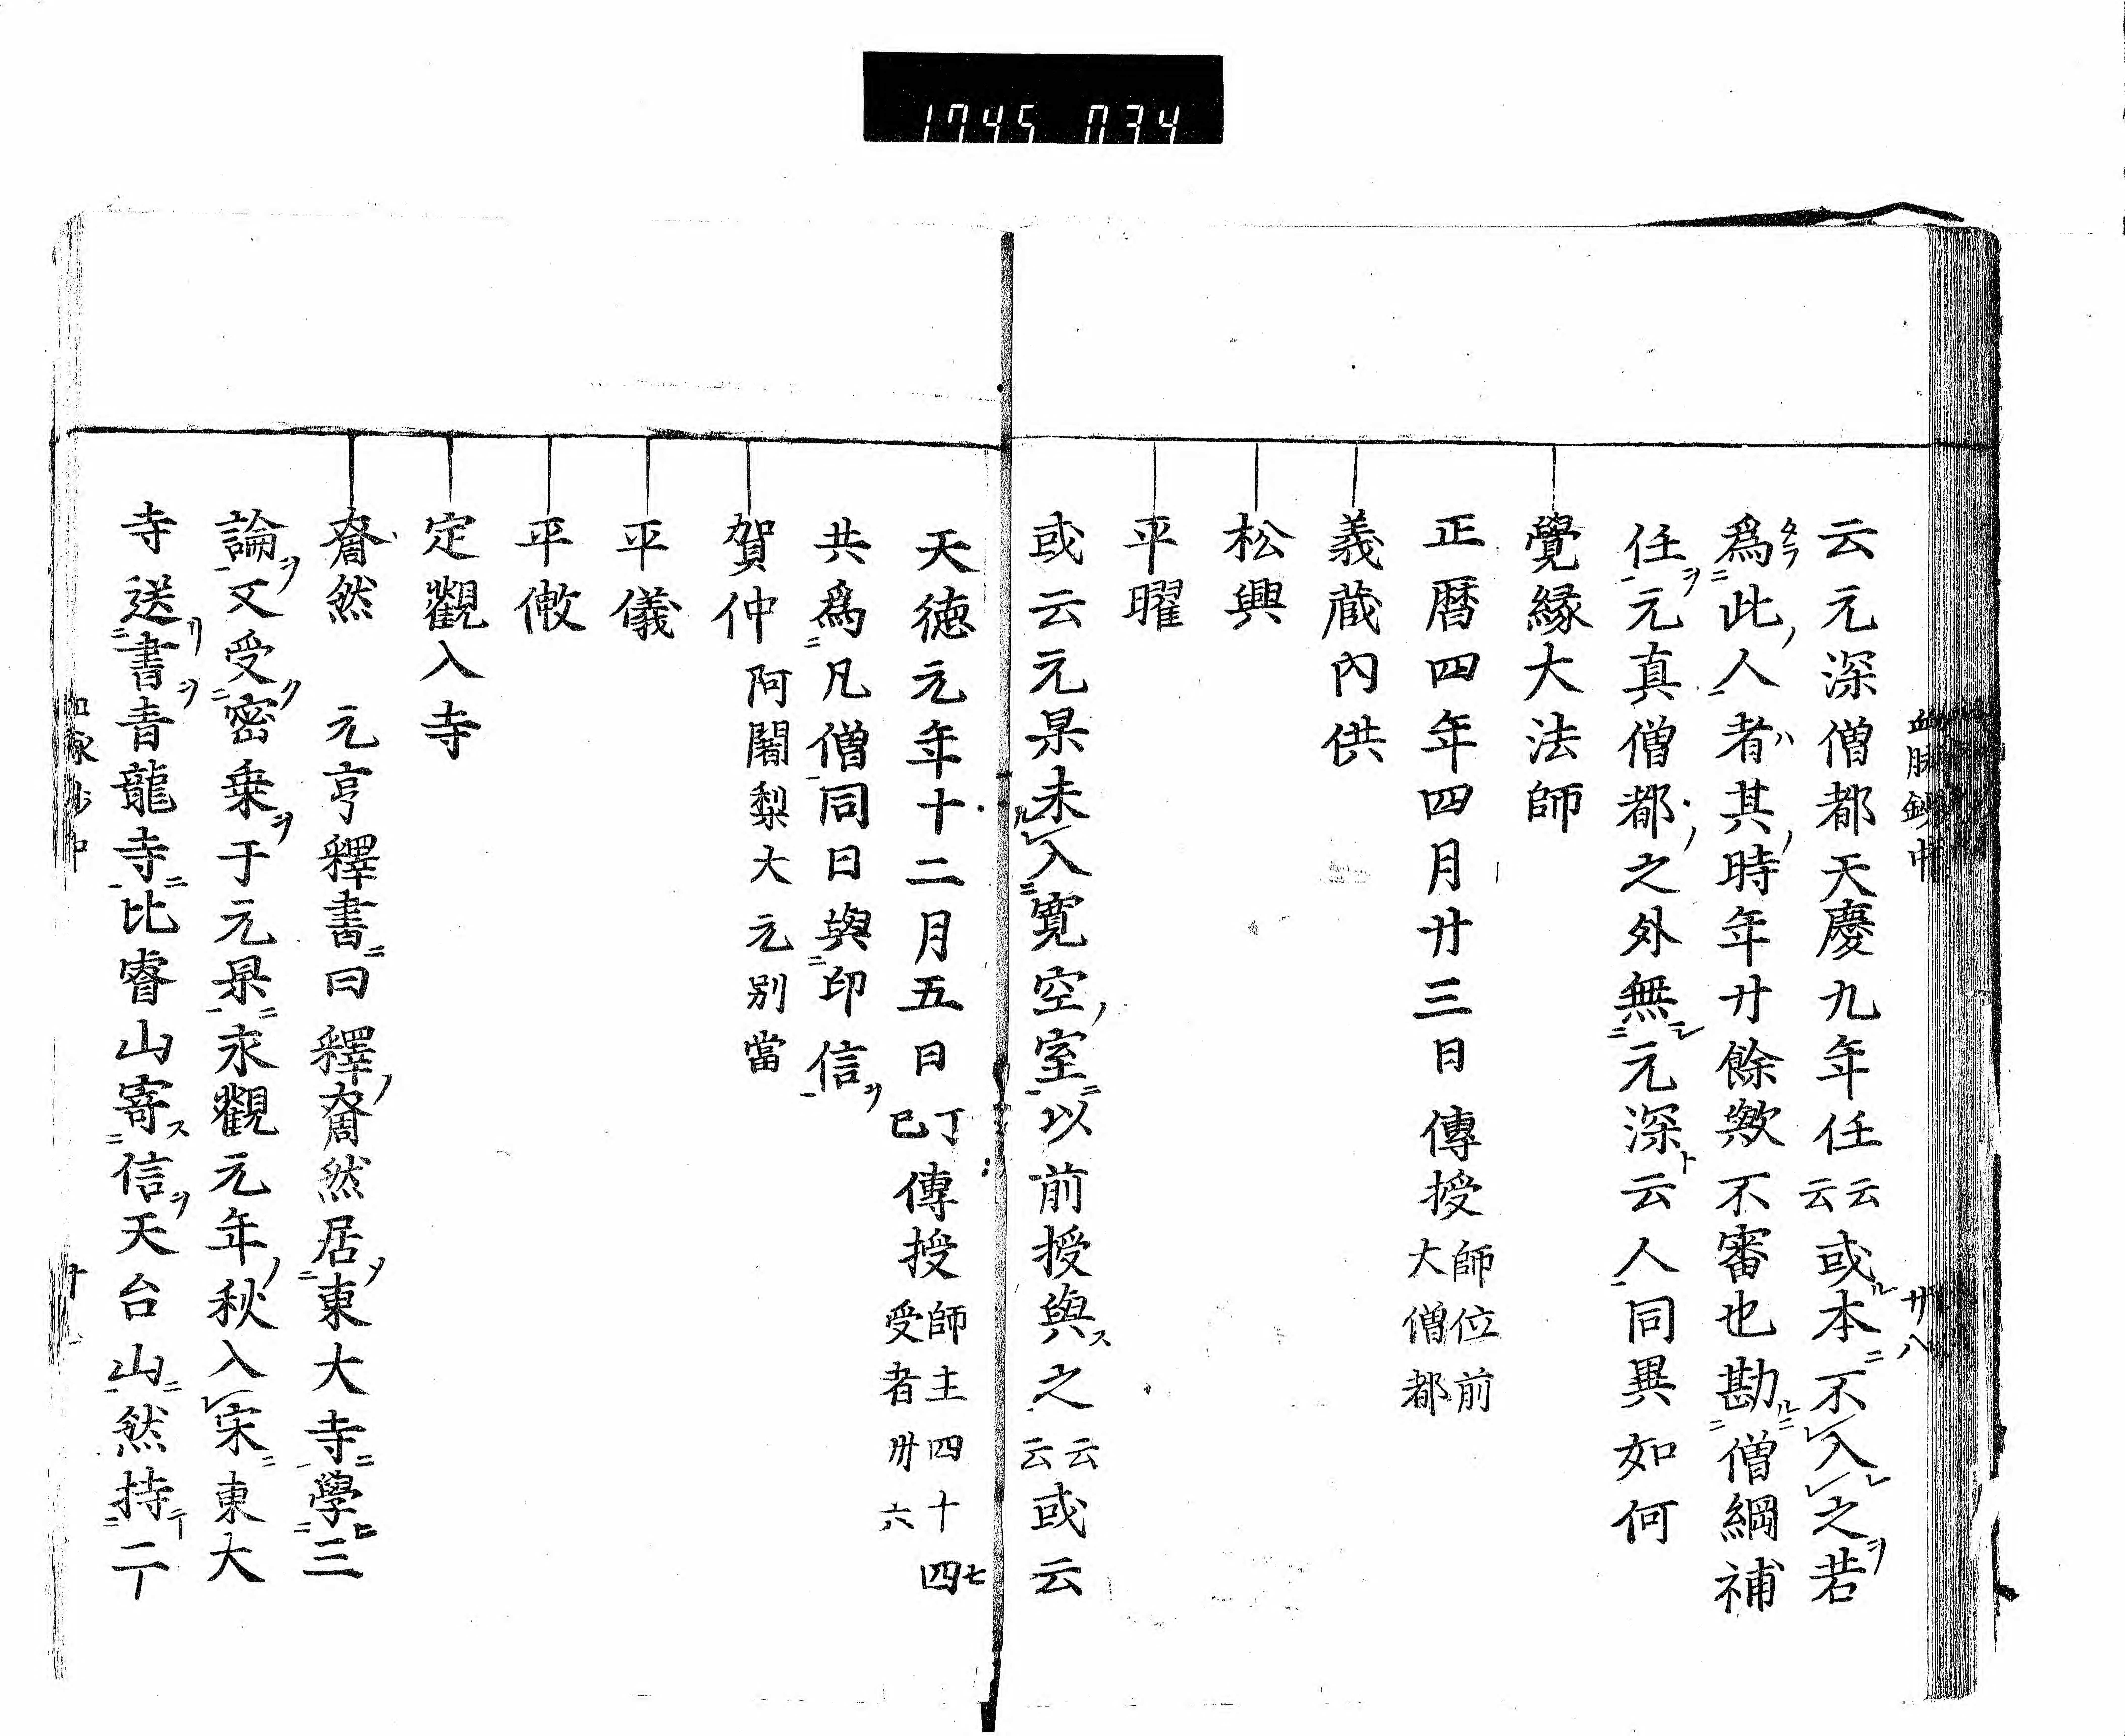 1745 034
血脉鈔中 廿八
云元深僧都天慶九年任云云或本不入之若
爲此人者其時年廿餘歟不審也勘僧綱補
任元真僧都之外無元深云人同異如何
覺縁大法師
正暦四年四月廿三日傳授師位前大僧都
義蔵內供
松興
平曜
或云元杲未入寛空室以前授與之云云或云
天徳元年十二月五日丁巳傳授師主四十四七受者卅六
共爲凡僧同日與印信
賀仲阿闍梨大元別當
平儀
平㪣
定觀入寺
奝然 元亨釋書曰釋奝然居東大寺學三
論又受密乗于元杲永觀元年秋入宋東大
寺送書青龍寺比睿山寄信天台山然持二